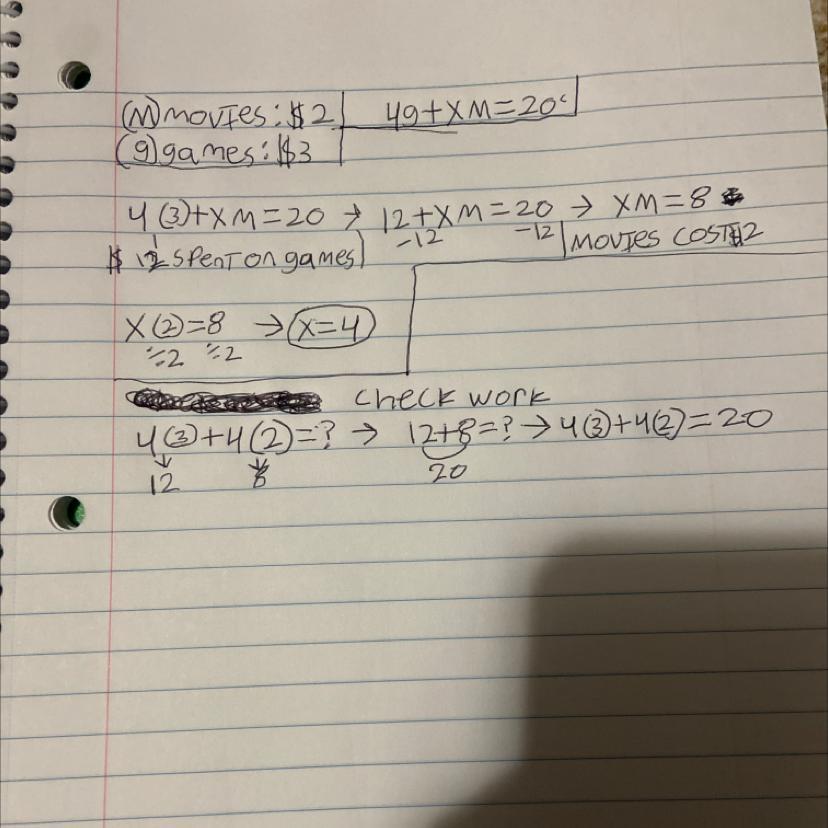 (M) movies: $2 4g + XM = 20
(g) games: $3
4(3) + XM = 20 → 12 + XM = 20 → XM = 8
-12 -12 movies cost $2
$12 spent on games
X(2) = 8 → X = 4
÷2 ÷2
check work
4(3) + 4(2) = ? → 12 + 8 = ? → 4(3) + 4(2) = 20
12 8 20